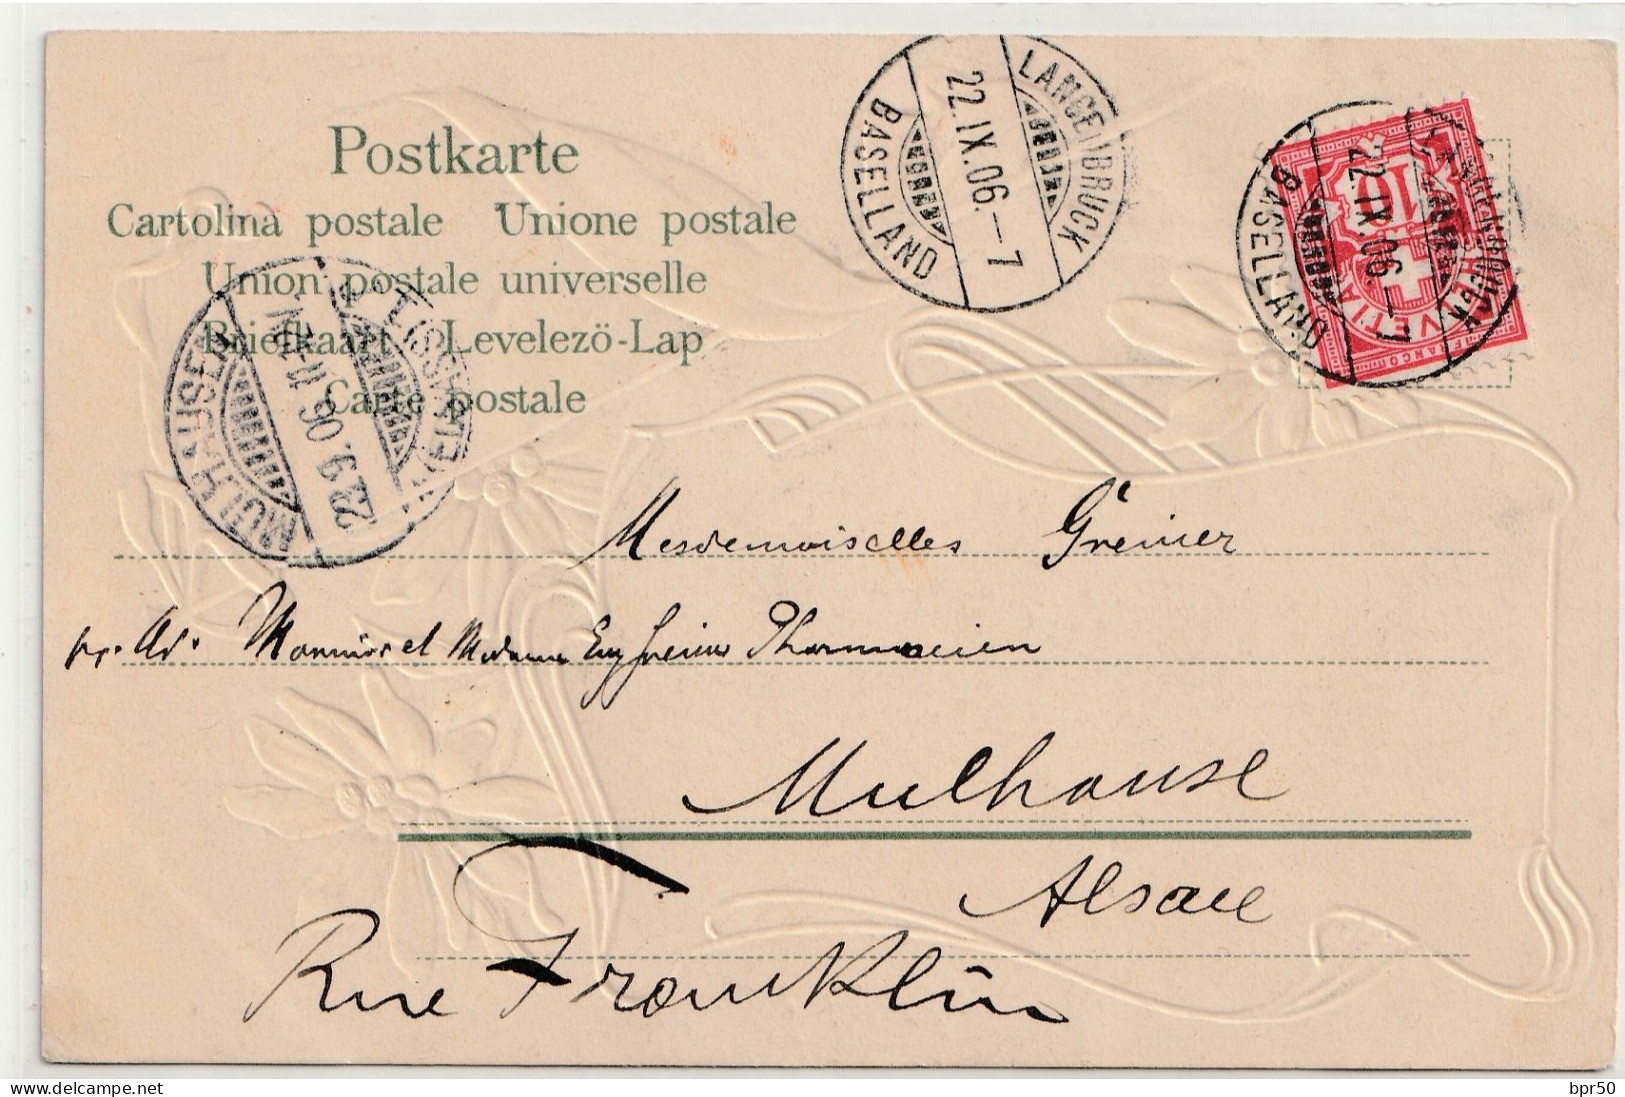 Postkarte
Cartolina postale Unione postale
Union postale universelle
Briefkaart Levelezö-Lap
Carte postale
LANGENBRUCK
22.IX.06.–7
BASELLAND
LANGENBRUCK
22.IX.06.–7
BASELLAND
10
HELVETIA
FRANCO
MÜLHAUSEN
22.9.06
Mesdemoiselles Greiner
pr. Ad. Monsieur et Madame Eug Greiner Pharmacien
Mulhouse
Alsace
Rue Franklin
delcampe.net
bpr50